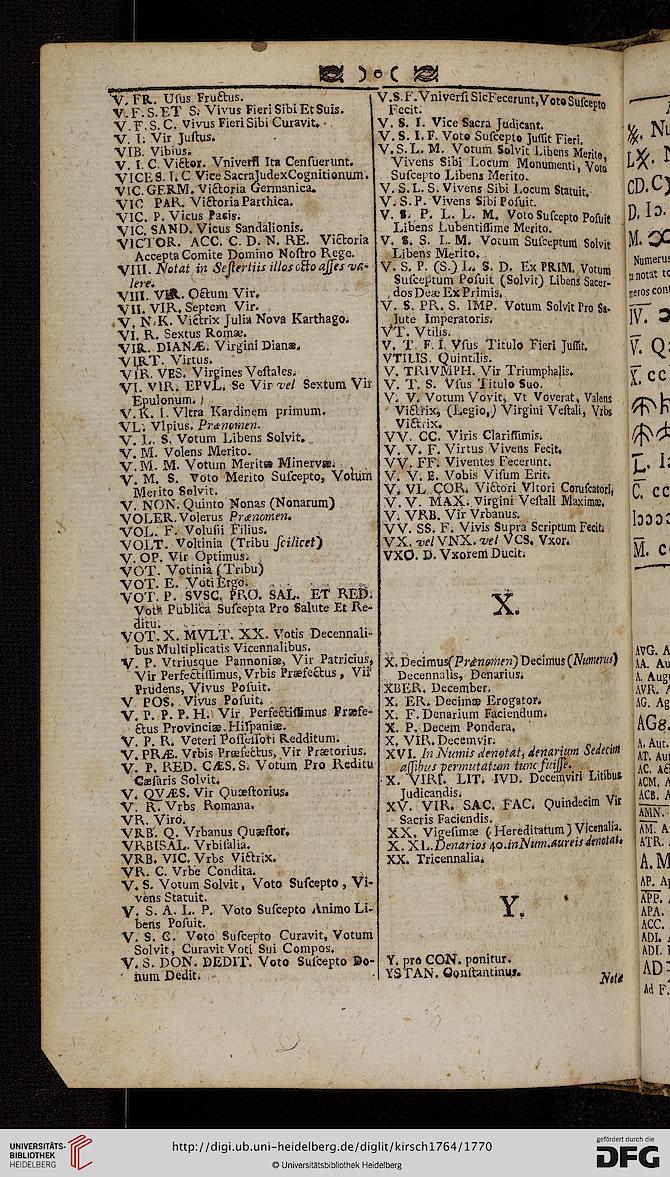 ) o (
V. FR. Uſus Fructus.
V. F. S. ET S. Vivus Fieri Sibi Et Suis.
V. F. S. C. Vivus Fieri Sibi Curavit.
V. I. Vir Juſtus.
VIB. Vibius.
V. I. C. Victor. Vniverſi Ita Cenſuerunt.
VICE S. I. C Vice Sacra Judex Cognitionum.
VIC. GERM. Victoria Germanica.
VIC PAR. Victoria Parthica.
VIC. P. Vicus Pacis.
VIC. SAND. Vicus Sandalionis.
VICTOR. ACC. C. D. N. RE. Victoria
Accepta Comite Domino Noſtro Rege.
VIII. Notat in Seſtertiis illos octo aſſes va-
lere.
VIII. VIR. Octum Vir.
VII. VIR. Septem Vir.
V. N. K. Victrix Julia Nova Karthago.
VI. R. Sextus Romæ.
VIR. DIANÆ. Virgini Dianæ.
VIRT. Virtus.
VIR. VES. Virgines Veſtales.
VI. VIR. EPVL. Se Vir vel Sextum Vir
Epulonum.
V. K. I. Vltra Kardinem primum.
VL. Vlpius. Prænomen.
V. L. S. Votum Libens Solvit.
V. M. Volens Merito.
V. M. M. Votum Meritæ Minervæ.
V. M. S. Voto Merito Suſcepto, Votum
Merito Solvit.
V. NON. Quinto Nonas (Nonarum)
VOLER. Volerus Prænomen.
VOL. F. Voluſii Filius.
VOLT. Voltinia (Tribu ſcilicet)
V. OP. Vir Optimus.
VOT. Votinia (Tribu)
VOT. E. Voti Ergo.
VOT. P. SVSC. PRO. SAL. ET RED.
Vota Publica Suſcepta Pro Salute Et Re-
ditu.
VOT. X. MVLT. XX. Votis Decennali-
bus Multiplicatis Vicennalibus.
V. P. Vtriusque Pannoniæ, Vir Patricius,
Vir Perfectiſſimus, Vrbis Præfectus, Vir
Prudens, Vivus Poſuit.
V POS. Vivus Poſuit.
V. P. P. P. H. Vir Perfectiſſimus Præfe-
ctus Provinciæ Hiſpaniæ.
V. P. R. Veteri Poſſeſſori Redditum.
V. PRÆ. Vrbis Præfectus, Vir Prætorius.
V. P. RED. CÆS. S. Votum Pro Reditu
Cæſaris Solvit.
V. QVÆS. Vir Quæſtorius.
V. R. Vrbs Romana.
VR. Viro.
VRB. Q. Vrbanus Quæſtor.
VRBISAL. Vrbiſalia.
VRB. VIC. Vrbs Victrix.
VR. C. Vrbe Condita.
V. S. Votum Solvit, Voto Suſcepto, Vi-
vens Statuit.
V. S. A. L. P. Voto Suſcepto Animo Li-
bens Poſuit.
V. S. C. Voto Suſcepto Curavit, Votum
Solvit, Curavit Voti Sui Compos.
V. S. DON. DEDIT. Voto Suſcepto Do-
num Dedit.
V. S. F. Vniverſi Sic Fecerunt, Voto Suſcepto
Fecit.
V. S. I. Vice Sacra Judicant.
V. S. I. F. Voto Suſcepto Juſſit Fieri.
V. S. L. M. Votum Solvit Libens Merito,
Vivens Sibi Locum Monumenti, Voto
Suſcepto Libens Merito.
V. S. L. S. Vivens Sibi Locum Statuit.
V. S. P. Vivens Sibi Poſuit.
V. S. P. L. L. M. Voto Suſcepto Poſuit
Libens Lubentiſſime Merito.
V. S. S. L. M. Votum Suſceptum Solvit
Libens Merito.
V. S. P. (S.) L. S. D. Ex PRIM. Votum
Suſceptum Poſuit (Solvit) Libens Sacer-
dos Deæ Ex Primis.
V. S. PR. S. IMP. Votum Solvit Pro Sa-
lute Imperatoris.
VT. Vtilis.
V. T. F. I. Vſus Titulo Fieri Juſſit.
VTILIS. Quintilis.
V. TRIVMPH. Vir Triumphalis.
V. T. S. Vſus Titulo Suo.
V. V. Votum Vovit, Vt Voverat, Valens
Victrix, (Legio,) Virgini Veſtali, Vrbs
Victrix.
VV. CC. Viris Clariſſimis.
V. V. F. Virtus Vivens Fecit.
VV. FF. Viventes Fecerunt.
V. V. E. Vobis Viſum Erit.
V. VL COR. Victori Vltori Coruſcatori.
V. V. MAX. Virgini Veſtali Maximæ.
V. VRB. Vir Vrbanus.
VV. SS. F. Vivis Supra Scriptum Fecit.
VX. vel VNX. vel VCS. Vxor.
VXO. D. Vxorem Ducit.
X.
X. Decimus (Prænomen) Decimus (Numerus)
Decennalis, Denarius.
XBER. December.
X. ER. Decimæ Erogator.
X. F. Denarium Faciendum.
X. P. Decem Pondera.
X. VIR. Decemvir.
XVI. In Numis denotat, denarium Sedecim
aſſibus permutatum tunc fuiſſe.
X. VIRI. LIT. IVD. Decemviri Litibus
Judicandis.
XV. VIR. SAC. FAC. Quindecim Vir
Sacris Faciendis.
XX. Vigeſimæ (Hereditatum) Vicenalia.
X. XL. Denarios 40. in Num. aureis denotat.
XX. Tricennalia.
Y.
Y. pro CON. ponitur.
YSTAN. Conſtantinus.
Notæ
UNIVERSITÄTS-
BIBLIOTHEK
HEIDELBERG
http://digi.ub.uni-heidelberg.de/diglit/kirsch1764/1770
© Universitätsbibliothek Heidelberg
gefördert durch die
DFG